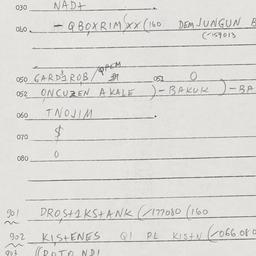 030 NAD+
040 - QBOXRIM)XX(160. DEMJUNGUN B
(-159013
050 GARD$ROB/ 051 0
052 ONCUZEN AKALE )-BAKUK )-BA
060 TNOJIM .
070 $
080 0
901 DROS+1KS+ANK (-/177080 (160
902 KIS+ENES Q1 PL KIS+N (-/066.080
903 ((ROTO NDI